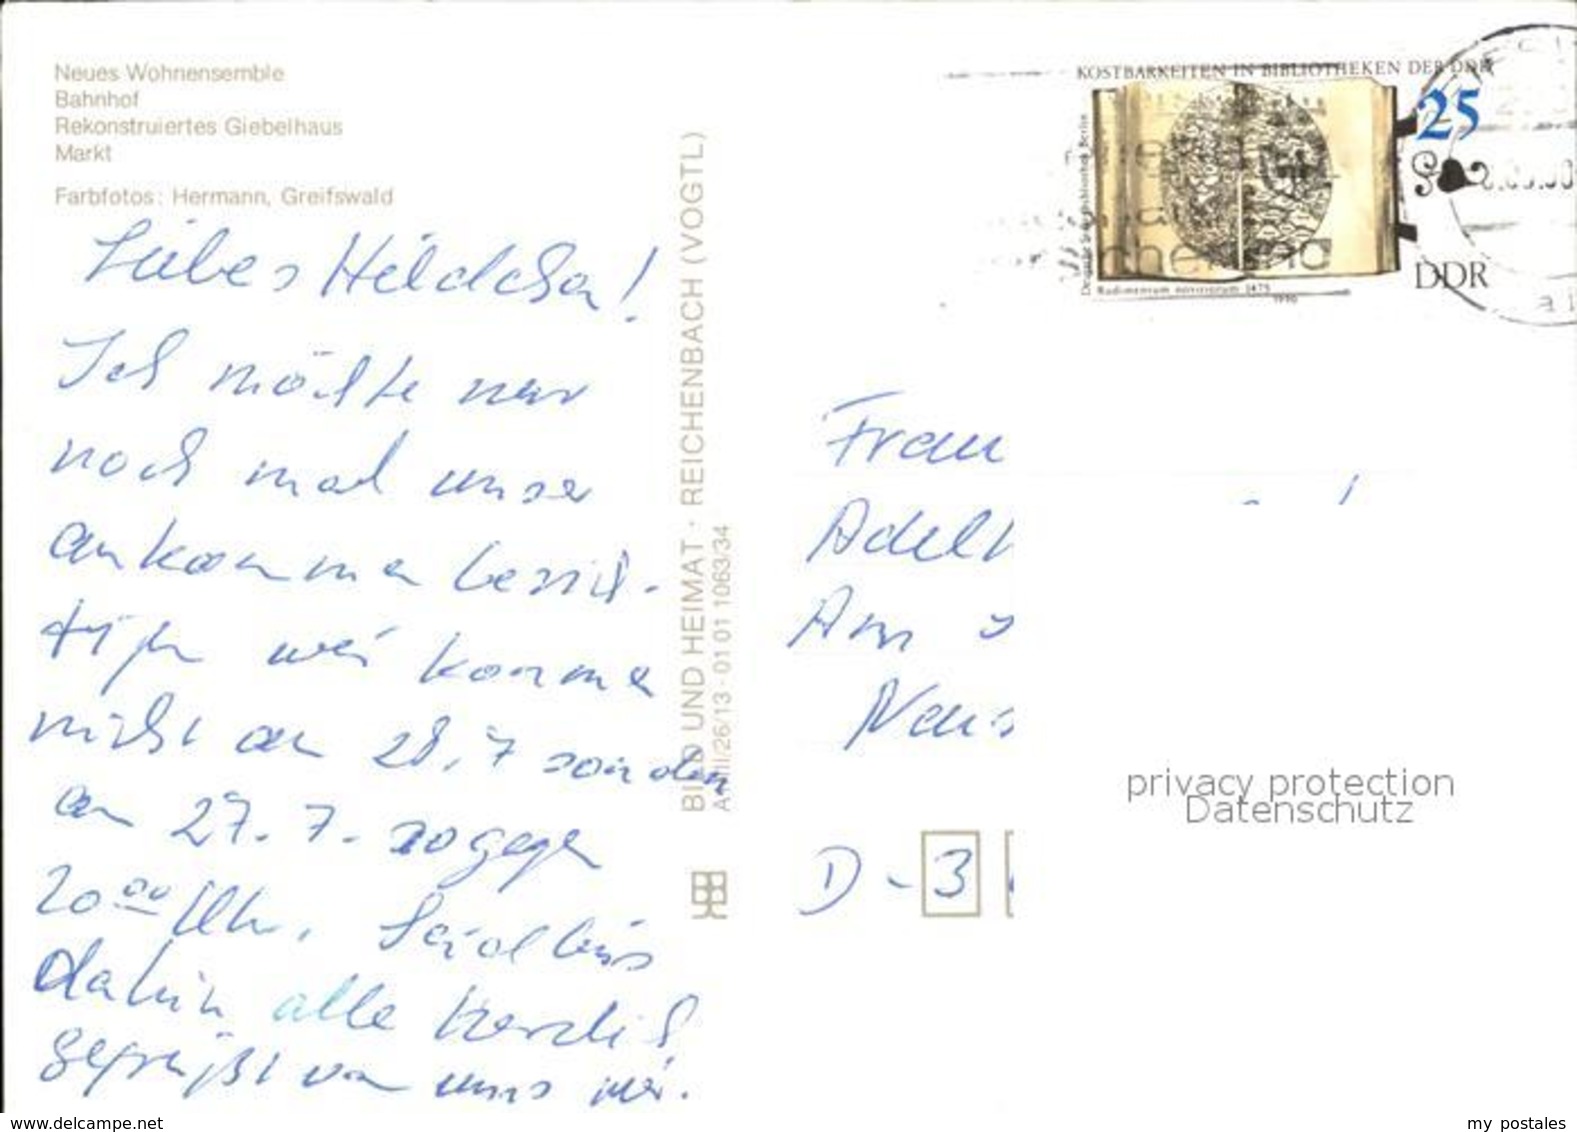 Neues Wohnensemble
Bahnhof
Rekonstruiertes Giebelhaus
Markt
Farbfotos: Hermann, Greifswald
Liebes Hildchen!
Ich möchte nur
noch mal unser
ankommen berich-
tigen wir kommen
nicht am 28.7 sondern
am 27.7. so gegen
20⁰⁰ Uhr. Seid bis
dahin alle herzlich
gegrüßt von uns
BILD UND HEIMAT · REICHENBACH (VOGTL)
01 01 1063/34
KOSTBARKEITEN IN BIBLIOTHEKEN DER DDR
25
Rudimentum novitiorum 1475
1990
DDR
Frau
Am
D - 3
privacy protection
Datenschutz
www.delcampe.net
my postales